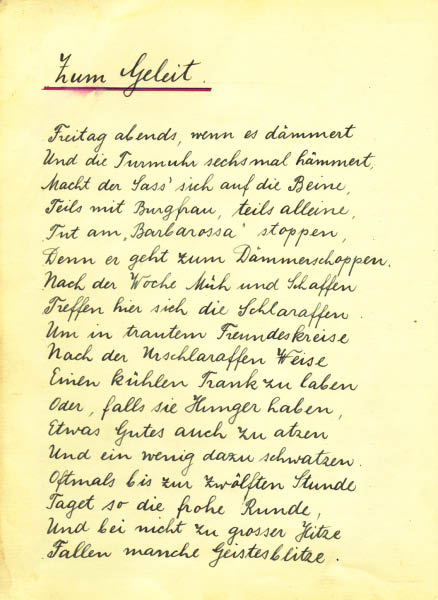 Zum Geleit.
Freitag abends, wenn es dämmert
Und die Turmuhr sechsmal hämmert,
Macht der Sass' sich auf die Beine,
Teils mit Burgfrau, teils alleine,
Tut am „Barbarossa" stoppen,
Denn er geht zum Dämmerschoppen.
Nach der Woche Müh und Schaffen
Treffen hier sich die Schlaraffen.
Um in trautem Freundeskreise
Nach der Urschlaraffen Weise
Einen kühlen Trank zu laben
Oder, falls sie Hunger haben,
Etwas Gutes auch zu atzen
Und ein wenig dazu schwatzen.
Oftmals bis zur zwölften Stunde
Taget so die frohe Runde,
Und bei nicht zu grosser Hitze
Fallen manche Geistesblitze.